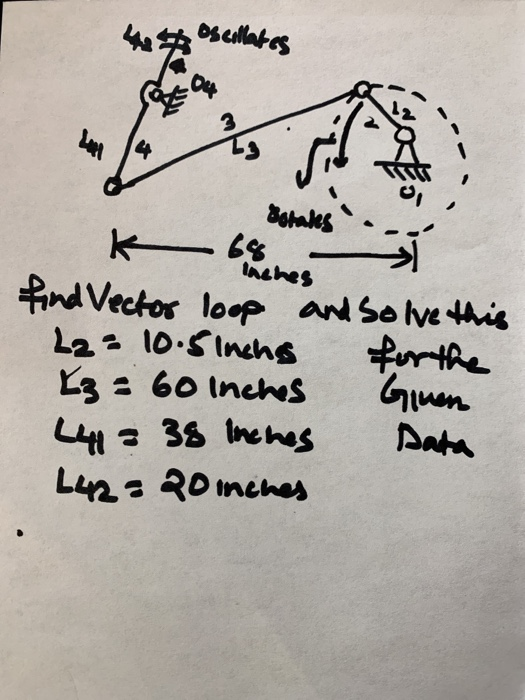 L42 Oscillates
O4
L41 4
3
L3
2 L2
1
O1
Rotates
68
Inches
find Vector loop and Solve this
L2 = 10.5 Inches for the
L3 = 60 Inches Given
L41 = 38 Inches Data
L42 = 20 inches